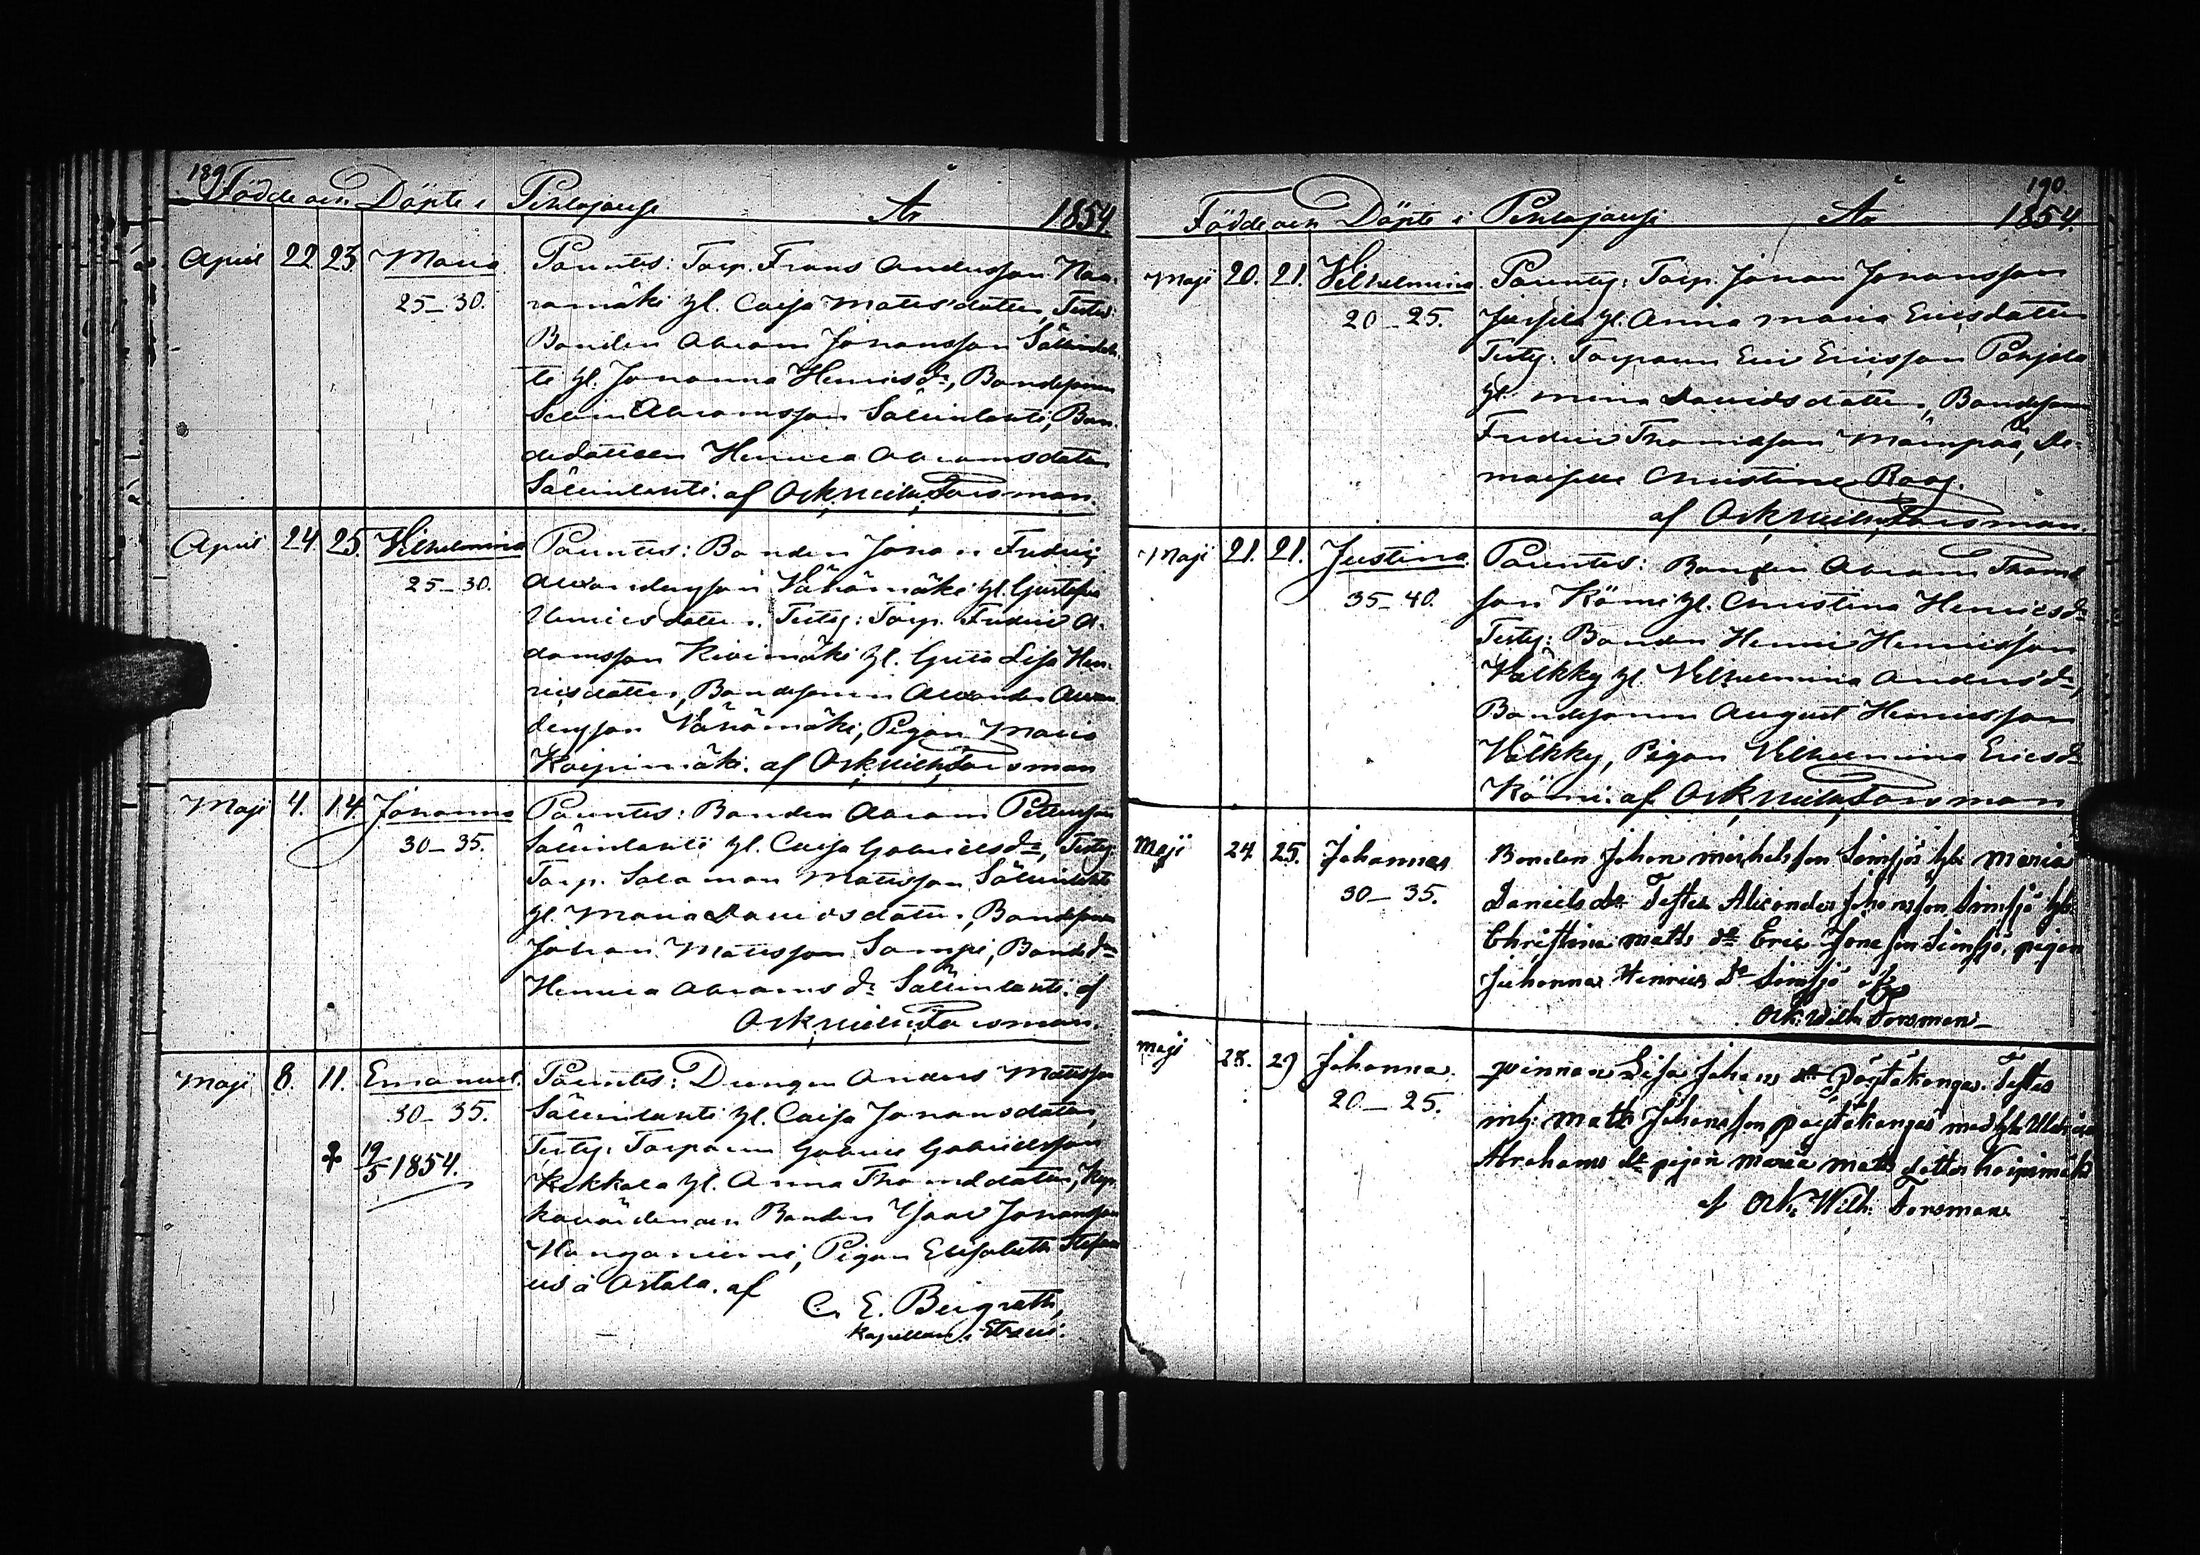 189.
Födde och Döpte i Pihlajavesi År 1854.
April 22. 23. Maria
25–30.
Parentes: Torp. Frans Andersson Haa-
ramäki hl. Caisa Matts dotter, Testes
Bonden Abram Johansson Sällinlah-
ti hl. Johanna Henricsdr, Bondesonen
Abramsson Sällinlahti, Bon-
dedottren Henrica Abramsdotter
Sällinlahti. af Osk. Wilh. Forsman.
April 24. 25. Vilhelmina
25–30.
Parentes: Bonden Johan Fredric
Alexandersson Vähämäki hl. Gustafva
Henricsdotter. Testes: Torp. Fredric A-
damsson Kivimäki hl. Greta Lisa Hen-
ricsdotter, Bondesonen Alexander Alexan-
dersson Vähämäki, Pigan Maria
Koipimäki. af Osk. Wilh. Forsman
Maji 4. 14. Johanna
30–35.
Parentes: Bonden Abram Pettersson
Sällinlahti hl. Caisa Gabrielsdr, Testes
Torp. Salomon Mattsson Sällinlahti
hl. Maria Davidsdotter, Bondesonen
Johan Mattsson Sampi, Bondedr
Henrica Abramsdr Sällinlahti. af
Osk. Wilh. Forsman.
Maji 8. 11. Emanuel.
30–35.
19/5 1854.
Parentes: Drengen Anders Mattsson
Sällinlahti hl. Caisa Johansdotter,
Testes: Torparen Gabriel Gabrielsson
Kekkala hl. Anna Thomedotter, Kyr-
kovärden och Bonden Isaac Johansson
Hanganiemi, Pigan Elisabeth Stefani
us à Ostola. af
C. E. Bergroth,
Kapellan i Etseri.
190
Födde och Döpte i Pihlajavesi År 1854.
Maji 20. 21. Vilhelmina
20–25.
Parentes: Torp. Johan Johansson
hl. Anna Maria Ericsdotter
Testes: Torparen Eric Ericsson Pohjola
hl. Mina Davidsdotter, Bondesonen
Fredric Thomasson Mämpää, De-
moiselle Christine Roos.
af Osk. Wilh. Forsman.
Maji 21. 21. Justina
35–40.
Parentes: Bonden Abram Thoms
son Kömi hl. Christina Henricsdr
Testes: Bonden Henric Henricsson
Välkky hl. Vilhelmina Andersdr,
Bondesonen August Henricsson
Välkky, Pigan Vilhelmina Ericsdr
Kömi. af Osk. Wilh. Forsman
Maji 24. 25. Johannes
30–35.
Bonden Johan Michelsson Simsjö hb. Maria
Daniels dr Testes Alexander Johansson Simsjö hb.
Christina Matts dr Eric Jonasson Simsjö, pigan
Johanna Henrics dr Simsjö af
Osk. Wilh. Forsman
Maji 28. 29 Johanna.
20–25.
qvinnan Lisa Johans dr Pöytäkangas. Testes
inh. Matts Johansson Pöytäkangas med hb. Ulrica
Abrahams dr pigan Maria Matts dotter Koipimäki
af Osk. Wilh. Forsman